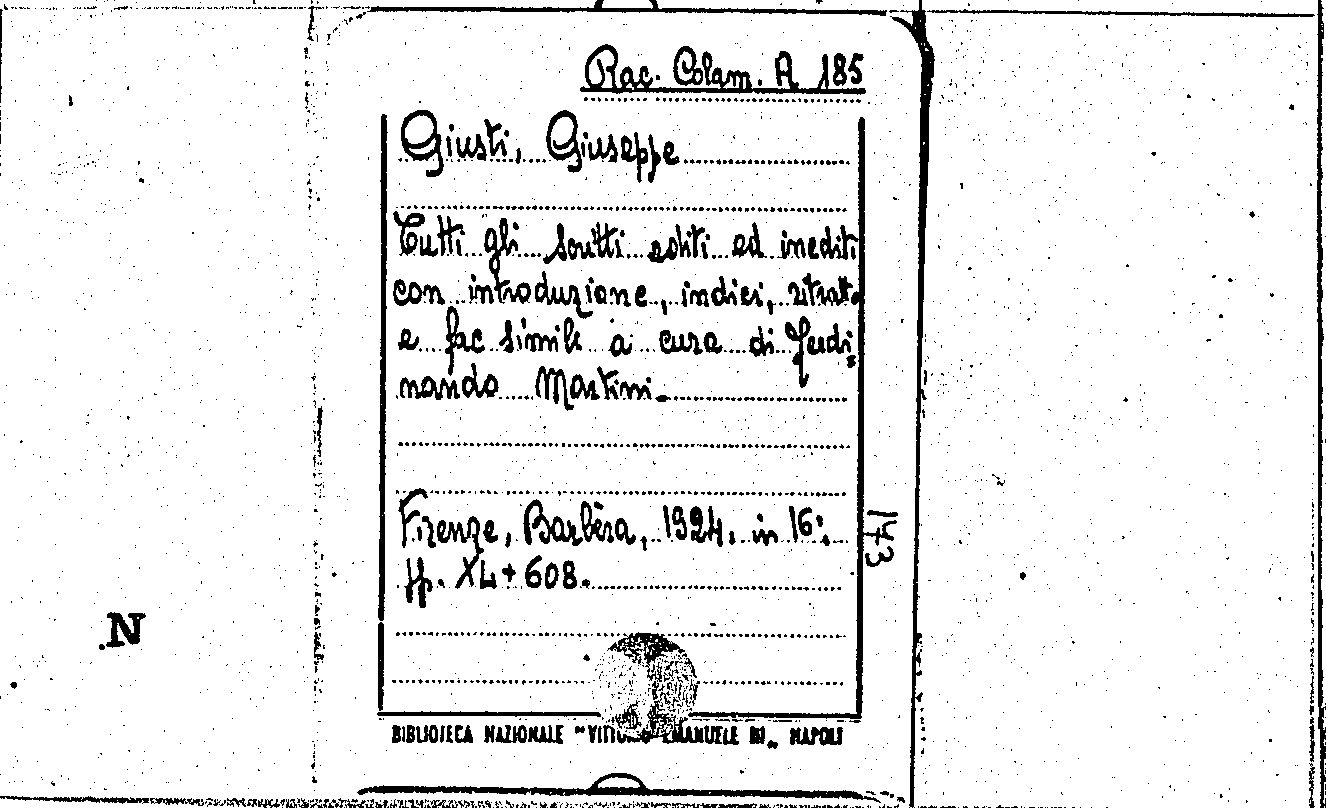 Rac. Colam. A 185
Giusti, Giuseppe
Tutti gli scritti editi ed inediti
con introduzione, indici, ritratti
e fac simili a cura di Ferdi=
nando Martini.
Firenze, Barbèra, 1924. in 16°.
pp. XL+608.
143
N
BIBLIOTECA NAZIONALE "VITTORIO EMANUELE III„ NAPOLI